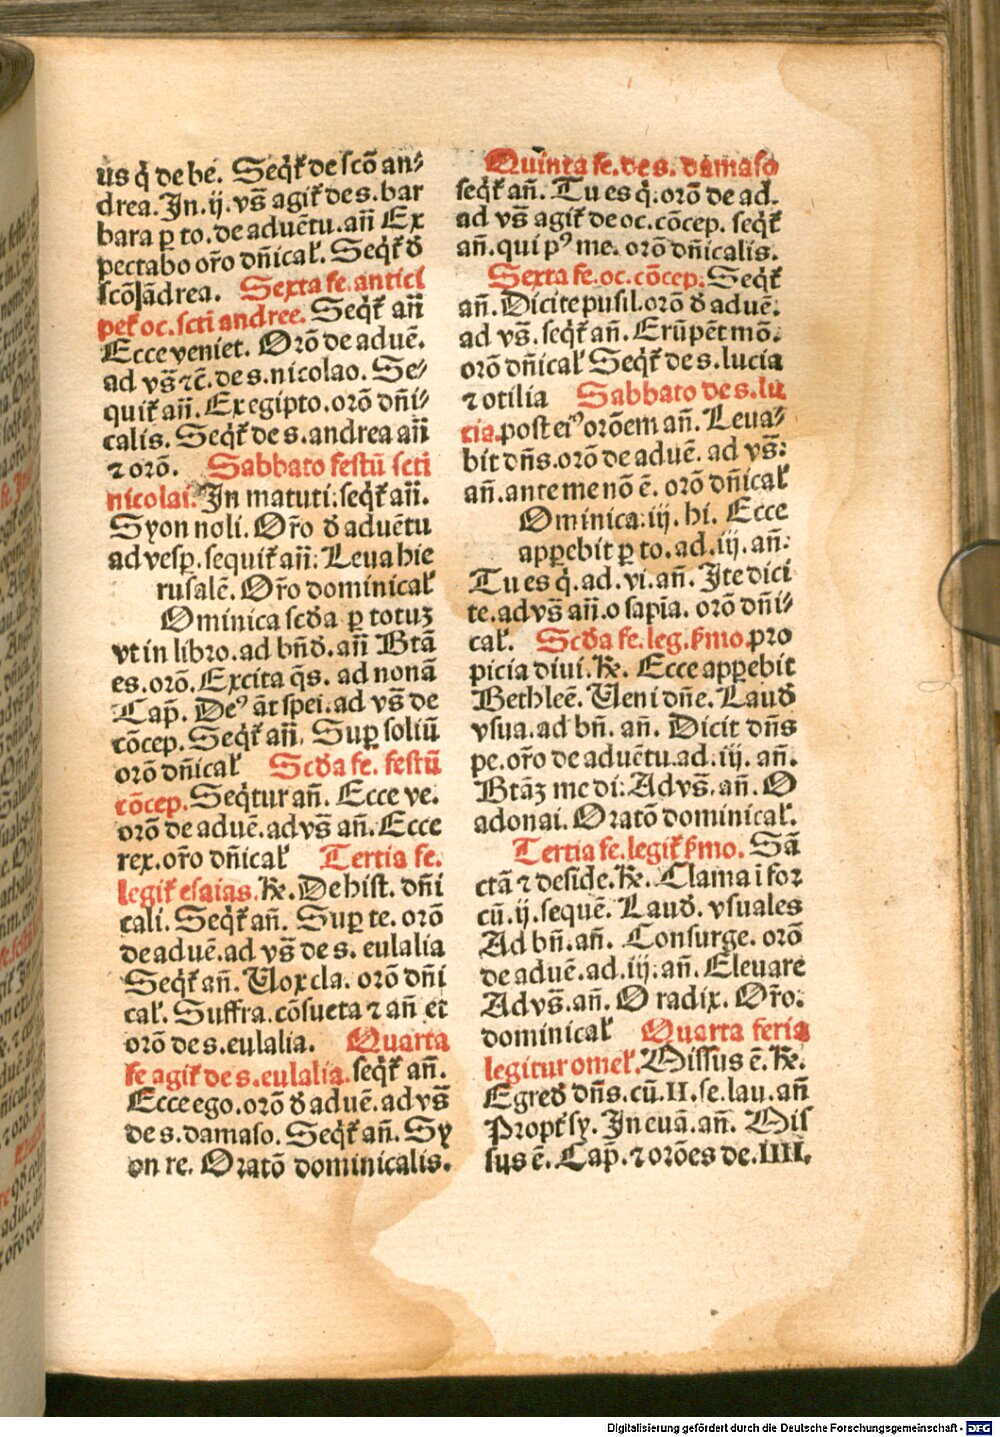 us q̇ de be. Seq̇ꝉ de scō an⸗
drea. In. ij. vs̄ agiꝉ de s. bar
bara ꝑ to. de aduētu. an̄ Ex
pectabo or̄o dn̄icaꝉ. Seq̇ꝉ ð
scō Iādrea. Sexta fe. antici
peꝉ oc. scti andree. Seq̇ꝉ an̄
Ecce veniet. Orō de aduē.
ad vs̄ ⁊c̄. de s. nicolao. Se⸗
quiꝉ an̄. Ex egipto. orō dn̄i⸗
calis. Seq̇ꝉ de s. andrea an̄
⁊ orō. Sabbato festū scti
nicolai. In matuti: seq̇ꝉ an̄.
Syon noli. Or̄o ð aduētu
ad vesꝑ. sequiꝉ an̄: Leua hie
rusalē. Or̄o dominicaꝉ
Ominica scða ꝑ totuꝫ
vt in libro. ad bn̄ð. an̄ Btā
es. orō. Excita q̄s. ad nonā
Cap̄. De⁹ āt spei. ad vs̄ de
cōcep. Seq̇ꝉ an̄. Suꝑ soliū
orō dn̄icaꝉ Scða fe. festū
cōcep. Seq̇tur an̄. Ecce ve.
orō de aduē. ad vs̄ an̄. Ecce
rex. or̄o dn̄icaꝉ Tertia fe.
legiꝉ esaias. ℟. De hist. dn̄i
cali. Seq̇ꝉ an̄. Suꝑ te. orō
de aduē. ad vs̄ de s. eulalia
Seq̇ꝉ an̄. Vox cla. orō dn̄i
caꝉ. Suffra. cōsueta ⁊ an̄ et
orō de s. eulalia. Quarta
fe agiꝉ de s. eulalia. seq̇ꝉ an̄.
Ecce ego. orō ð aduē. ad vs̄
de s. damaso. Seq̇ꝉ an̄. Sy
on re. Oratō dominicalis.
Quinta fe. de s. damaso
seq̇ꝉ an̄. Tu es q̇. orō de ad.
ad vs̄ agiꝉ de oc. cōcep. seq̇ꝉ
an̄. qui p⁹ me. orō dn̄icalis.
Sexta fe. oc. cōcep. Seq̇ꝉ
an̄. Dicite pusil. orō ð aduē.
ad vs̄. seq̇ꝉ an̄. Erūpēt mō.
orō dn̄icaꝉ Seq̇ꝉ de s. lucia
⁊ otilia Sabbato de s. lu
cia. post ei⁹ orōem an̄. Leua⸗
bit dn̄s. orō de aduē. ad vs̄:
an̄. ante me nō ē. orō dn̄icaꝉ
Ominica: iij. hi. Ecce
apꝑebit ꝑ to. ad. iij. an̄:
Tu es q̇. ad. vi. an̄. Ite dici
te. ad vs̄ an̄. o sapīa. orō dn̄i⸗
caꝉ. Scða fe. leg. p̄mo. pro
picia diui. ℟. Ecce apꝑebit
Bethleē. Veni dn̄e. Lauð
vsua. ad bn̄. an̄. Dicit dn̄s
pe. or̄o de aduētu. ad. iij. an̄.
Btāꝫ me di: Ad vs̄. an̄. O
adonai. Oratō dominicaꝉ.
Tertia fe. legiꝉ p̄mo. Sā
ctā ⁊ deside. ℟. Clama ī for
cū. ij. sequē. Lauð. vsuales
Ad bn̄. an̄. Consurge. orō
de aduē. ad. iij. an̄. Eleuare
Ad vs̄. an̄. O radix. Or̄o.
dominicaꝉ Quarta feria
legitur omeꝉ. Missus ē. ℟.
Egreð dn̄s. cū. II. se. lau. an̄
Propꝉ sy. In euā. an̄. Mis
sus ē. Cap̄. ⁊ orōes de. IIII.
Digitalisierung gefördert durch die Deutsche Forschungsgemeinschaft - DFG